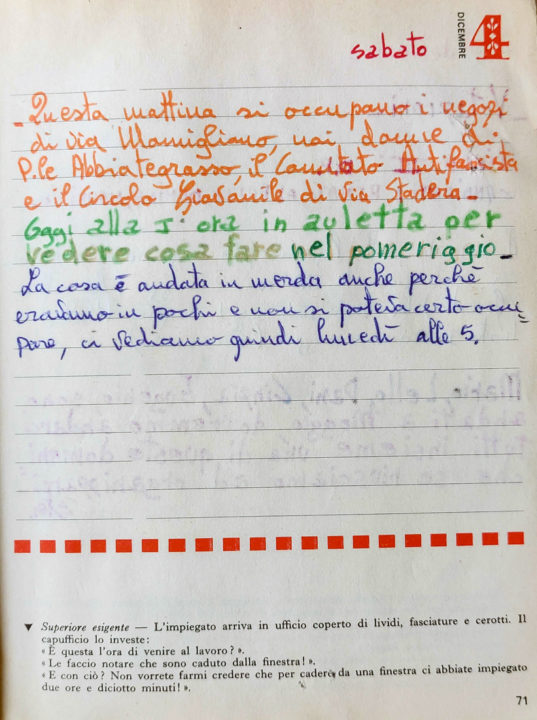 DICEMBRE
4
sabato
- Questa mattina si occupano i negozi
di via Mamigliano, noi donne di
P.le Abbiategrasso, il Comitato Antifascista
e il Circolo Giovanile di via Stadera -
Oggi alla 5ª ora in auletta per
vedere cosa fare nel pomeriggio -
La cosa è andata in merda anche perchè
eravamo in pochi e non si poteva certo occu=
pare, ci vediamo quindi lunedì alle 5.
▼ Superiore esigente — L'impiegato arriva in ufficio coperto di lividi, fasciature e cerotti. Il
capufficio lo investe:
« È questa l'ora di venire al lavoro? ».
« Le faccio notare che sono caduto dalla finestra! ».
« E con ciò? Non vorrete farmi credere che per cadere da una finestra ci abbiate impiegato
due ore e diciotto minuti! ».
71